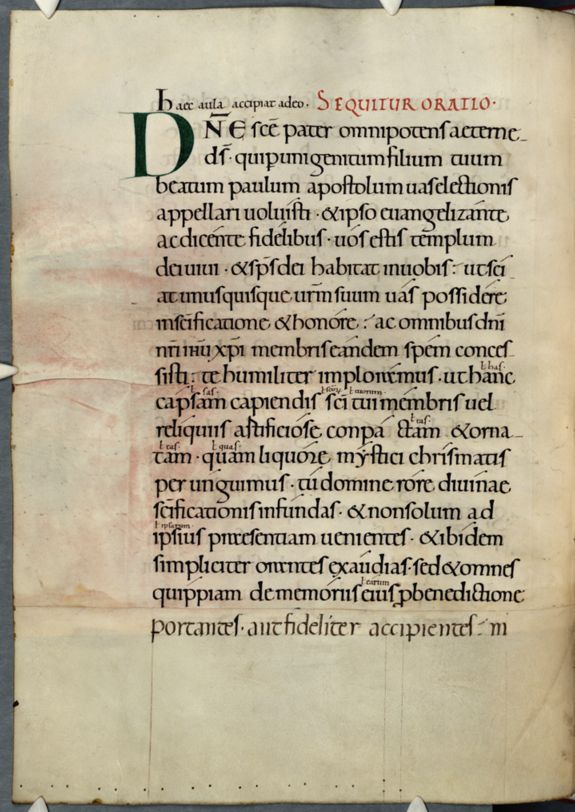 haec aula accipiat adeo. SEQUITUR ORATIO.
DN̄E sc̄e pater omnipotens aeterne
ds̄. qui p unigenitum filium tuum
beatum paulum apostolum uas electionis
appellari uoluisti. & ipso euangelizante
ac dicente fidelibus. uos estis templum
dei uiui. & sp̄s dei habitat in uobis: ut sci
at unusquisque ur̄m suum uas possidere
in sc̄ificatione & honore: ac omnibus dn̄i
nr̄i ih̄u xp̄i membris eandem spem conces
ł has.
sisti: te humiliter imploremus. ut hanc
ł sas. ł sōrū ł tuorum.
capsam capiendis sc̄i tui membris uel
ł tas.
reliquiis astificiose conpactam & orna
ł tas. ł quas.
tam. quam liquore mystici chrismatis
per unguimus. tu domine rore diuinae
sc̄ificationis infundas. & non solum ad
ł ipsarum.
ipsius praesentiam uenientes. & ibidem
simpliciter orantes exaudias. sed & omnes
ł earum
quippiam de memoriis eius p benedictione
portantes. aut fideliter accipientes: in